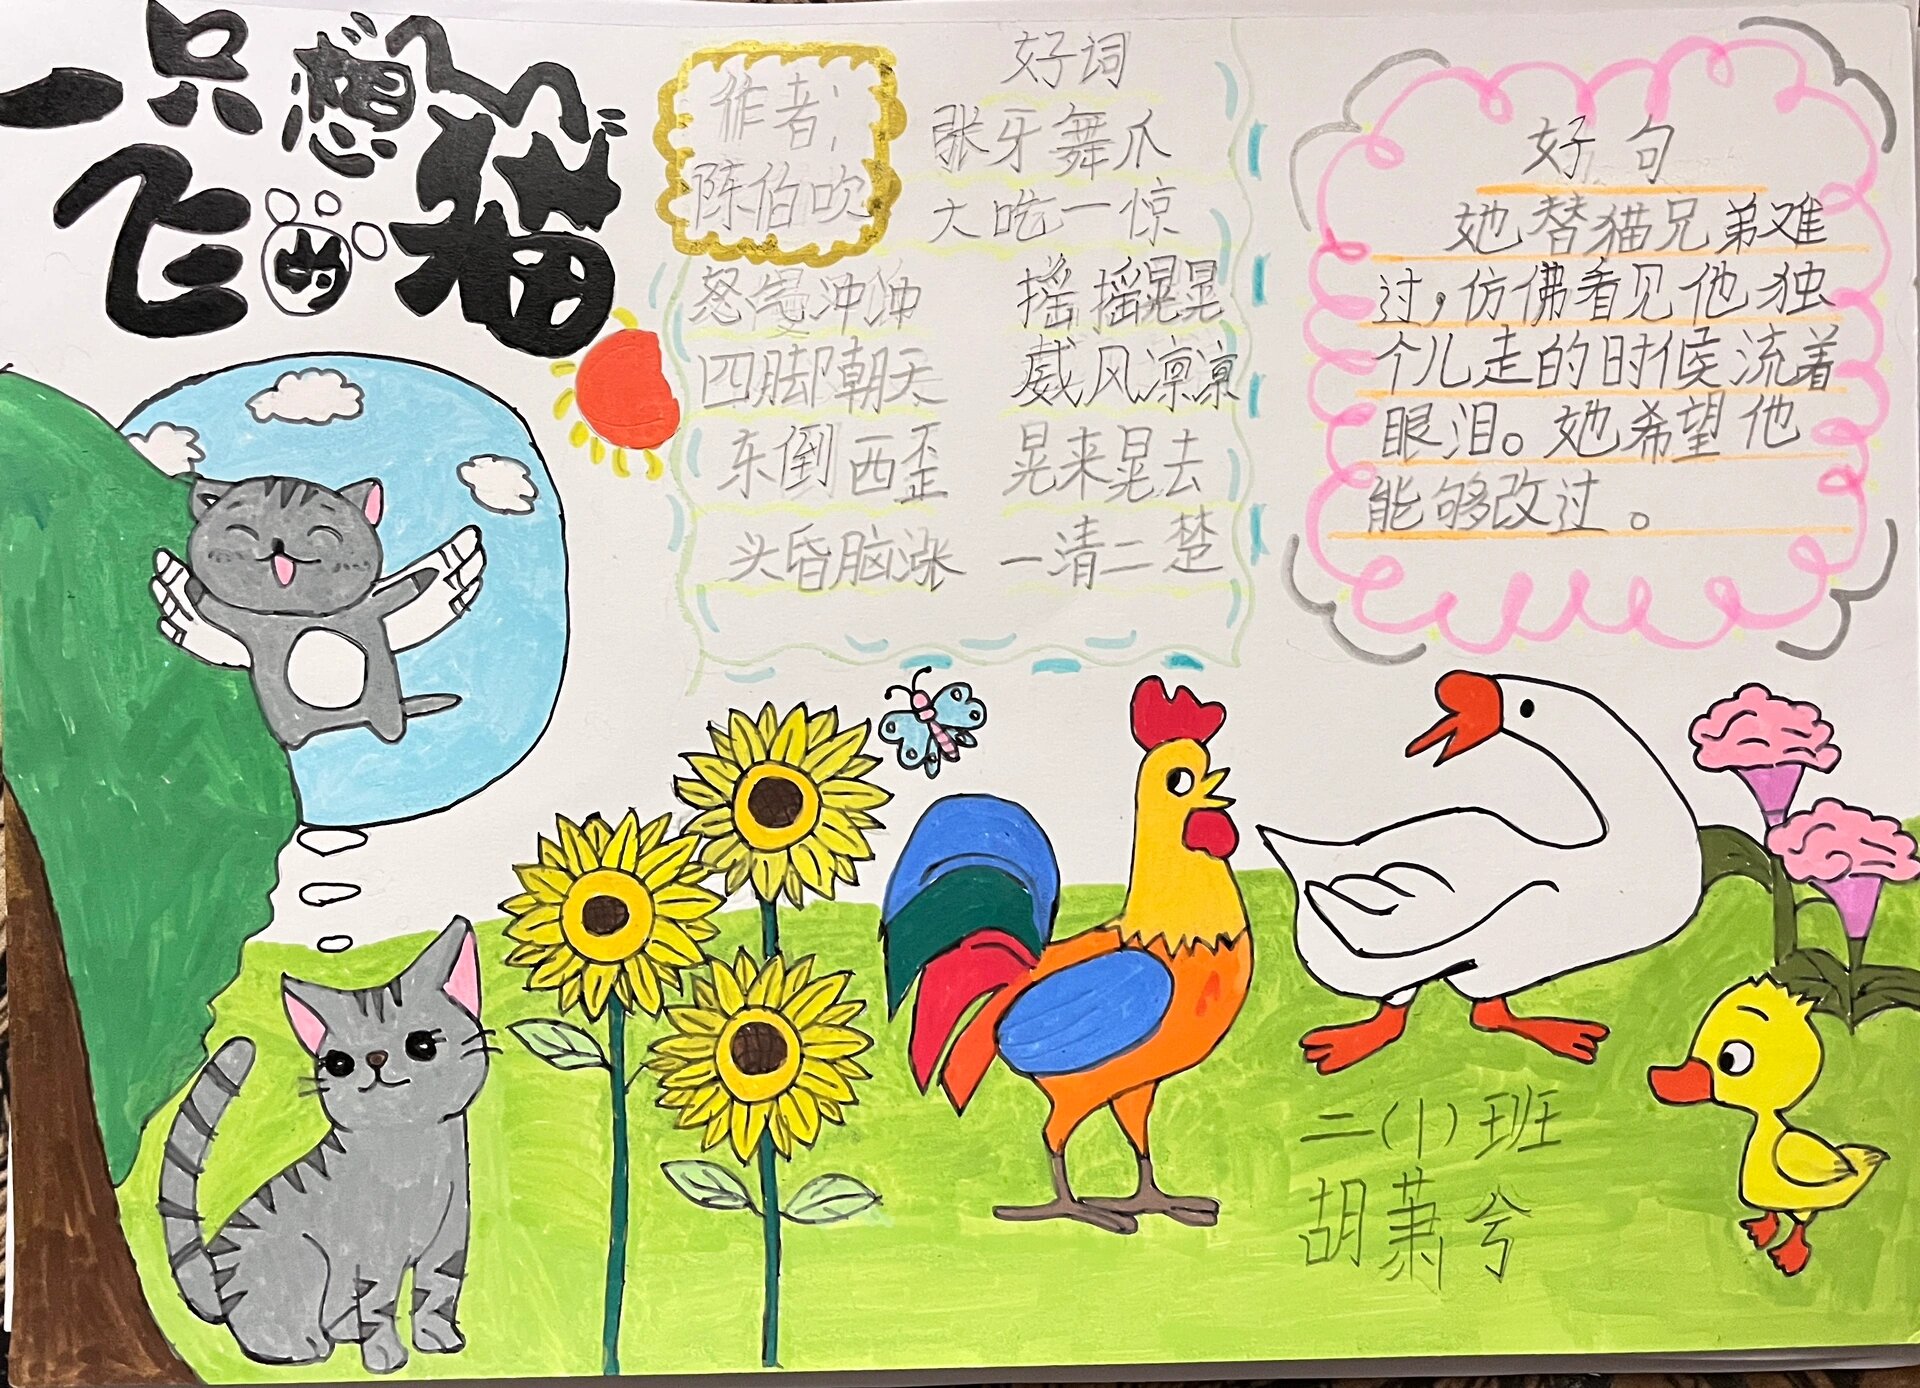 一只想
飞的猫
作者:
陈伯吹
好词
张牙舞爪
大吃一惊
怒气冲冲 摇摇晃晃
四脚朝天 威风凛凛
东倒西歪 晃来晃去
头昏脑涨 一清二楚
好句
她替猫兄弟难
过,仿佛看见他独
个儿走的时候流着
眼泪。她希望他
能够改过。
二(1)班
胡萧兮